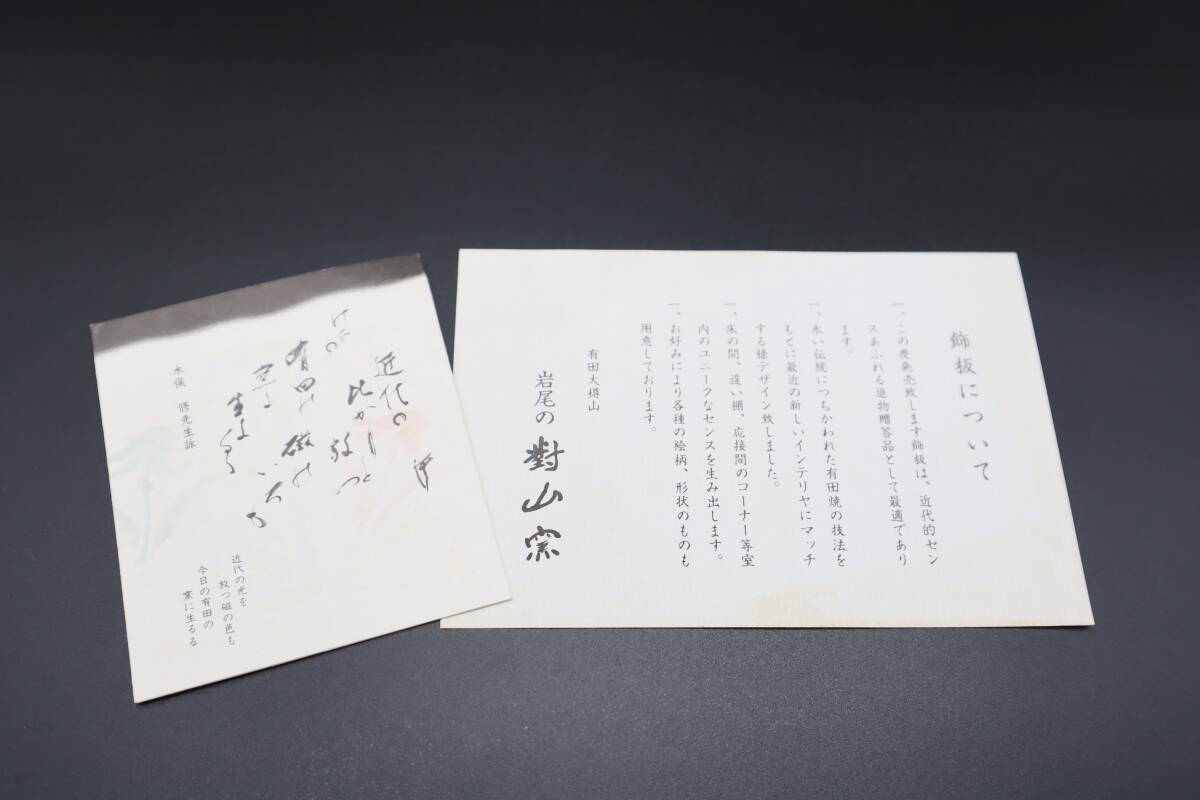 飾板について
一、この度発売致します飾板は、近代的セン
スあふれる進物贈答品として最適であり
ます。
一、永い伝統につちかわれた有田焼の技法を
もとに最近の新しいインテリヤにマッチ
する様デザイン致しました。
一、床の間、違い棚、応接間のコーナー等室
内のユニークなセンスを生み出します。
一、お好みにより各種の絵柄、形状のものも
用意しております。
有田大樽山
岩尾の對山窯
近代の
有田の磁の
木俣 修先生詠
近代の光を
放つ磁の色も
今日の有田の
窯に生るる